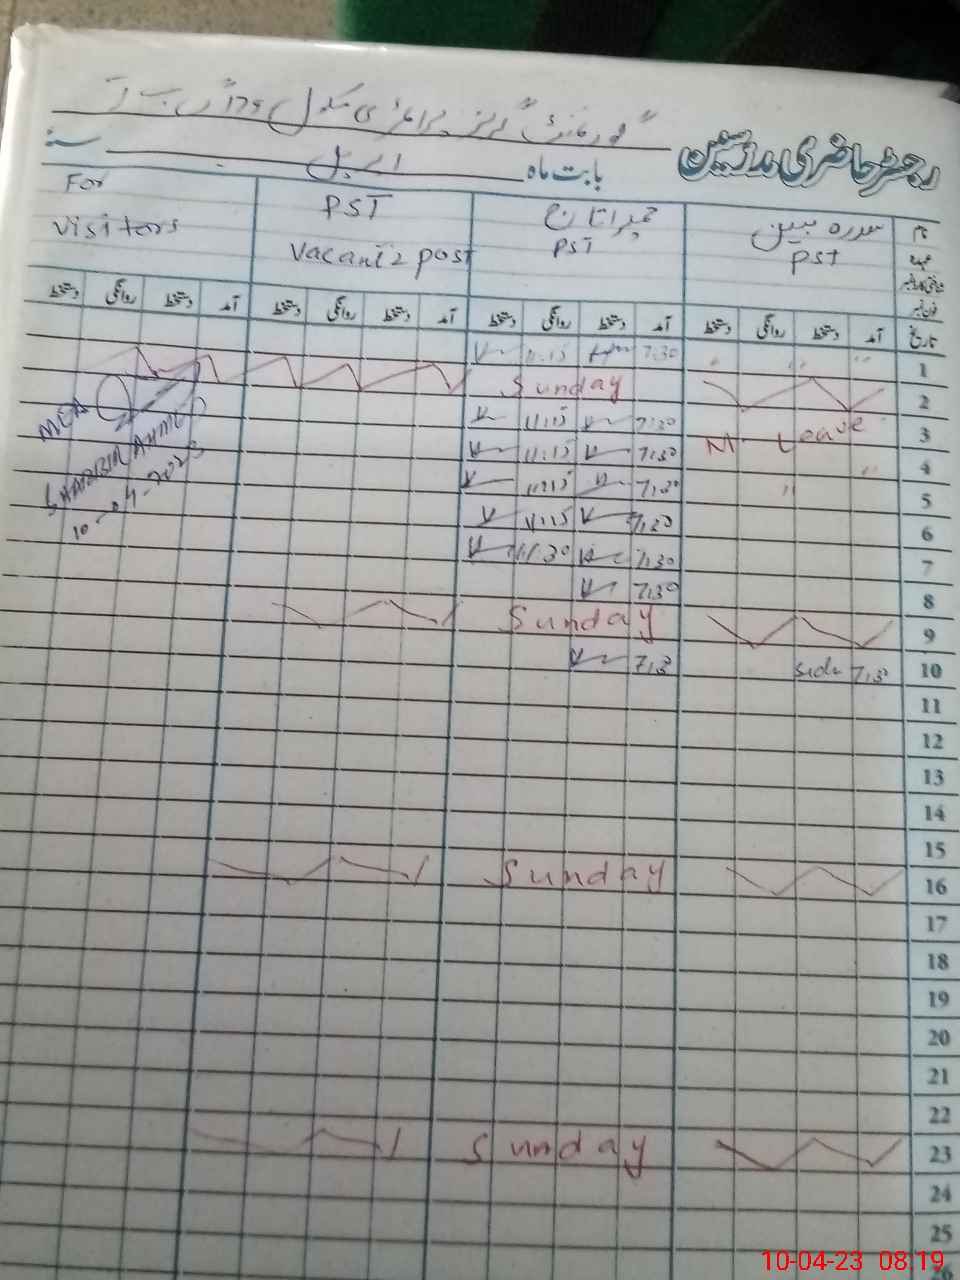 گورنمنٹ گرلز پرائمری سکول
رجسٹر حاضری مدرسین
بابت ماہ اپریل سنہ
نام
عہدہ
سدرہ مبین
PST
PST
PST
Vacant 2 post
For
Visitors
تاریخ آمد دستخط روانگی دستخط آمد دستخط روانگی دستخط آمد دستخط روانگی دستخط آمد دستخط روانگی دستخط
1 " " " 7:30 11:15
2 Sunday
3 7:30 11:15
M. Leave
4 7:30 11:15
5 " " 7:30 11:15
6 7:30 11:15
7 7:30 11:30
8 7:30
9 Sunday
10 7:3 7:3
11
12
13
14
15
16 Sunday
17
18
19
20
21
22
23 Sunday
24
25
26
MEA
10-04-2023
10-04-23 08:19